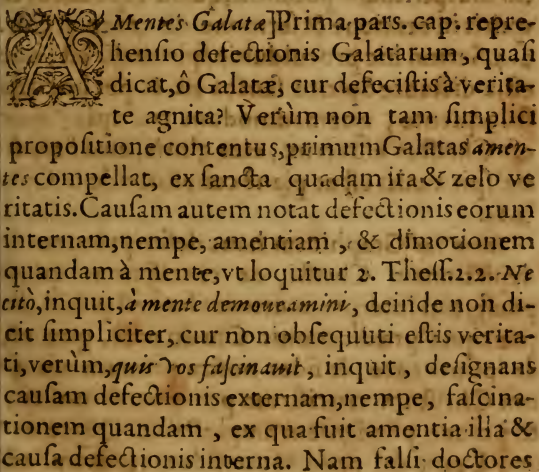 AMentes Galatæ]Prima pars. cap. repre-
henſio defectionis Galatarum, quaſi
dicat, ô Galatæ, cur defeciſtis à verita-
te agnita? Verùm non tam ſimplici
propoſitione contentus, primum Galatas amen-
tes compellat, ex ſancta quadam ira & zelo ve
ritatis. Cauſam autem notat defectionis eorum
internam, nempe, amentiam, & dimotionem
quandam à mente, vt loquitur 2. Theſſ. 2.2. Ne
citò, inquit, à mente demoueamini, deinde non di-
cit ſimpliciter, cur non obſequuti eſtis verita-
ti, verùm, quis vos faſcinauit, inquit, deſignans
cauſam defectionis externam, nempe, faſcina-
tionem quandam, ex qua fuit amentia illa &
cauſa defectionis interna. Nam falſi doctores